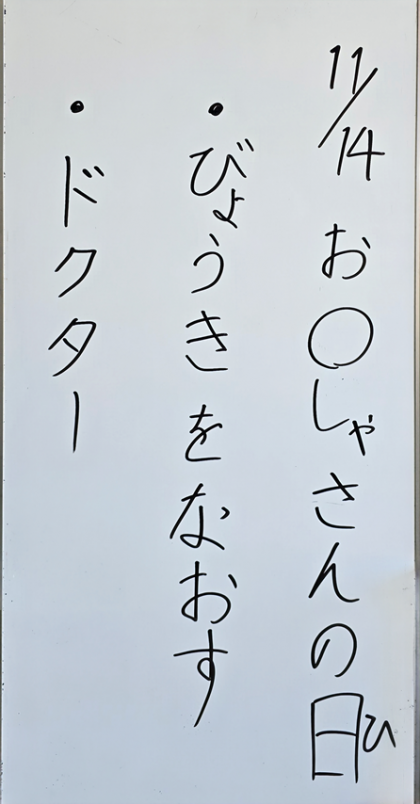 11/14 お〇しゃさんの日ひ
・びょうきをなおす
・ドクター